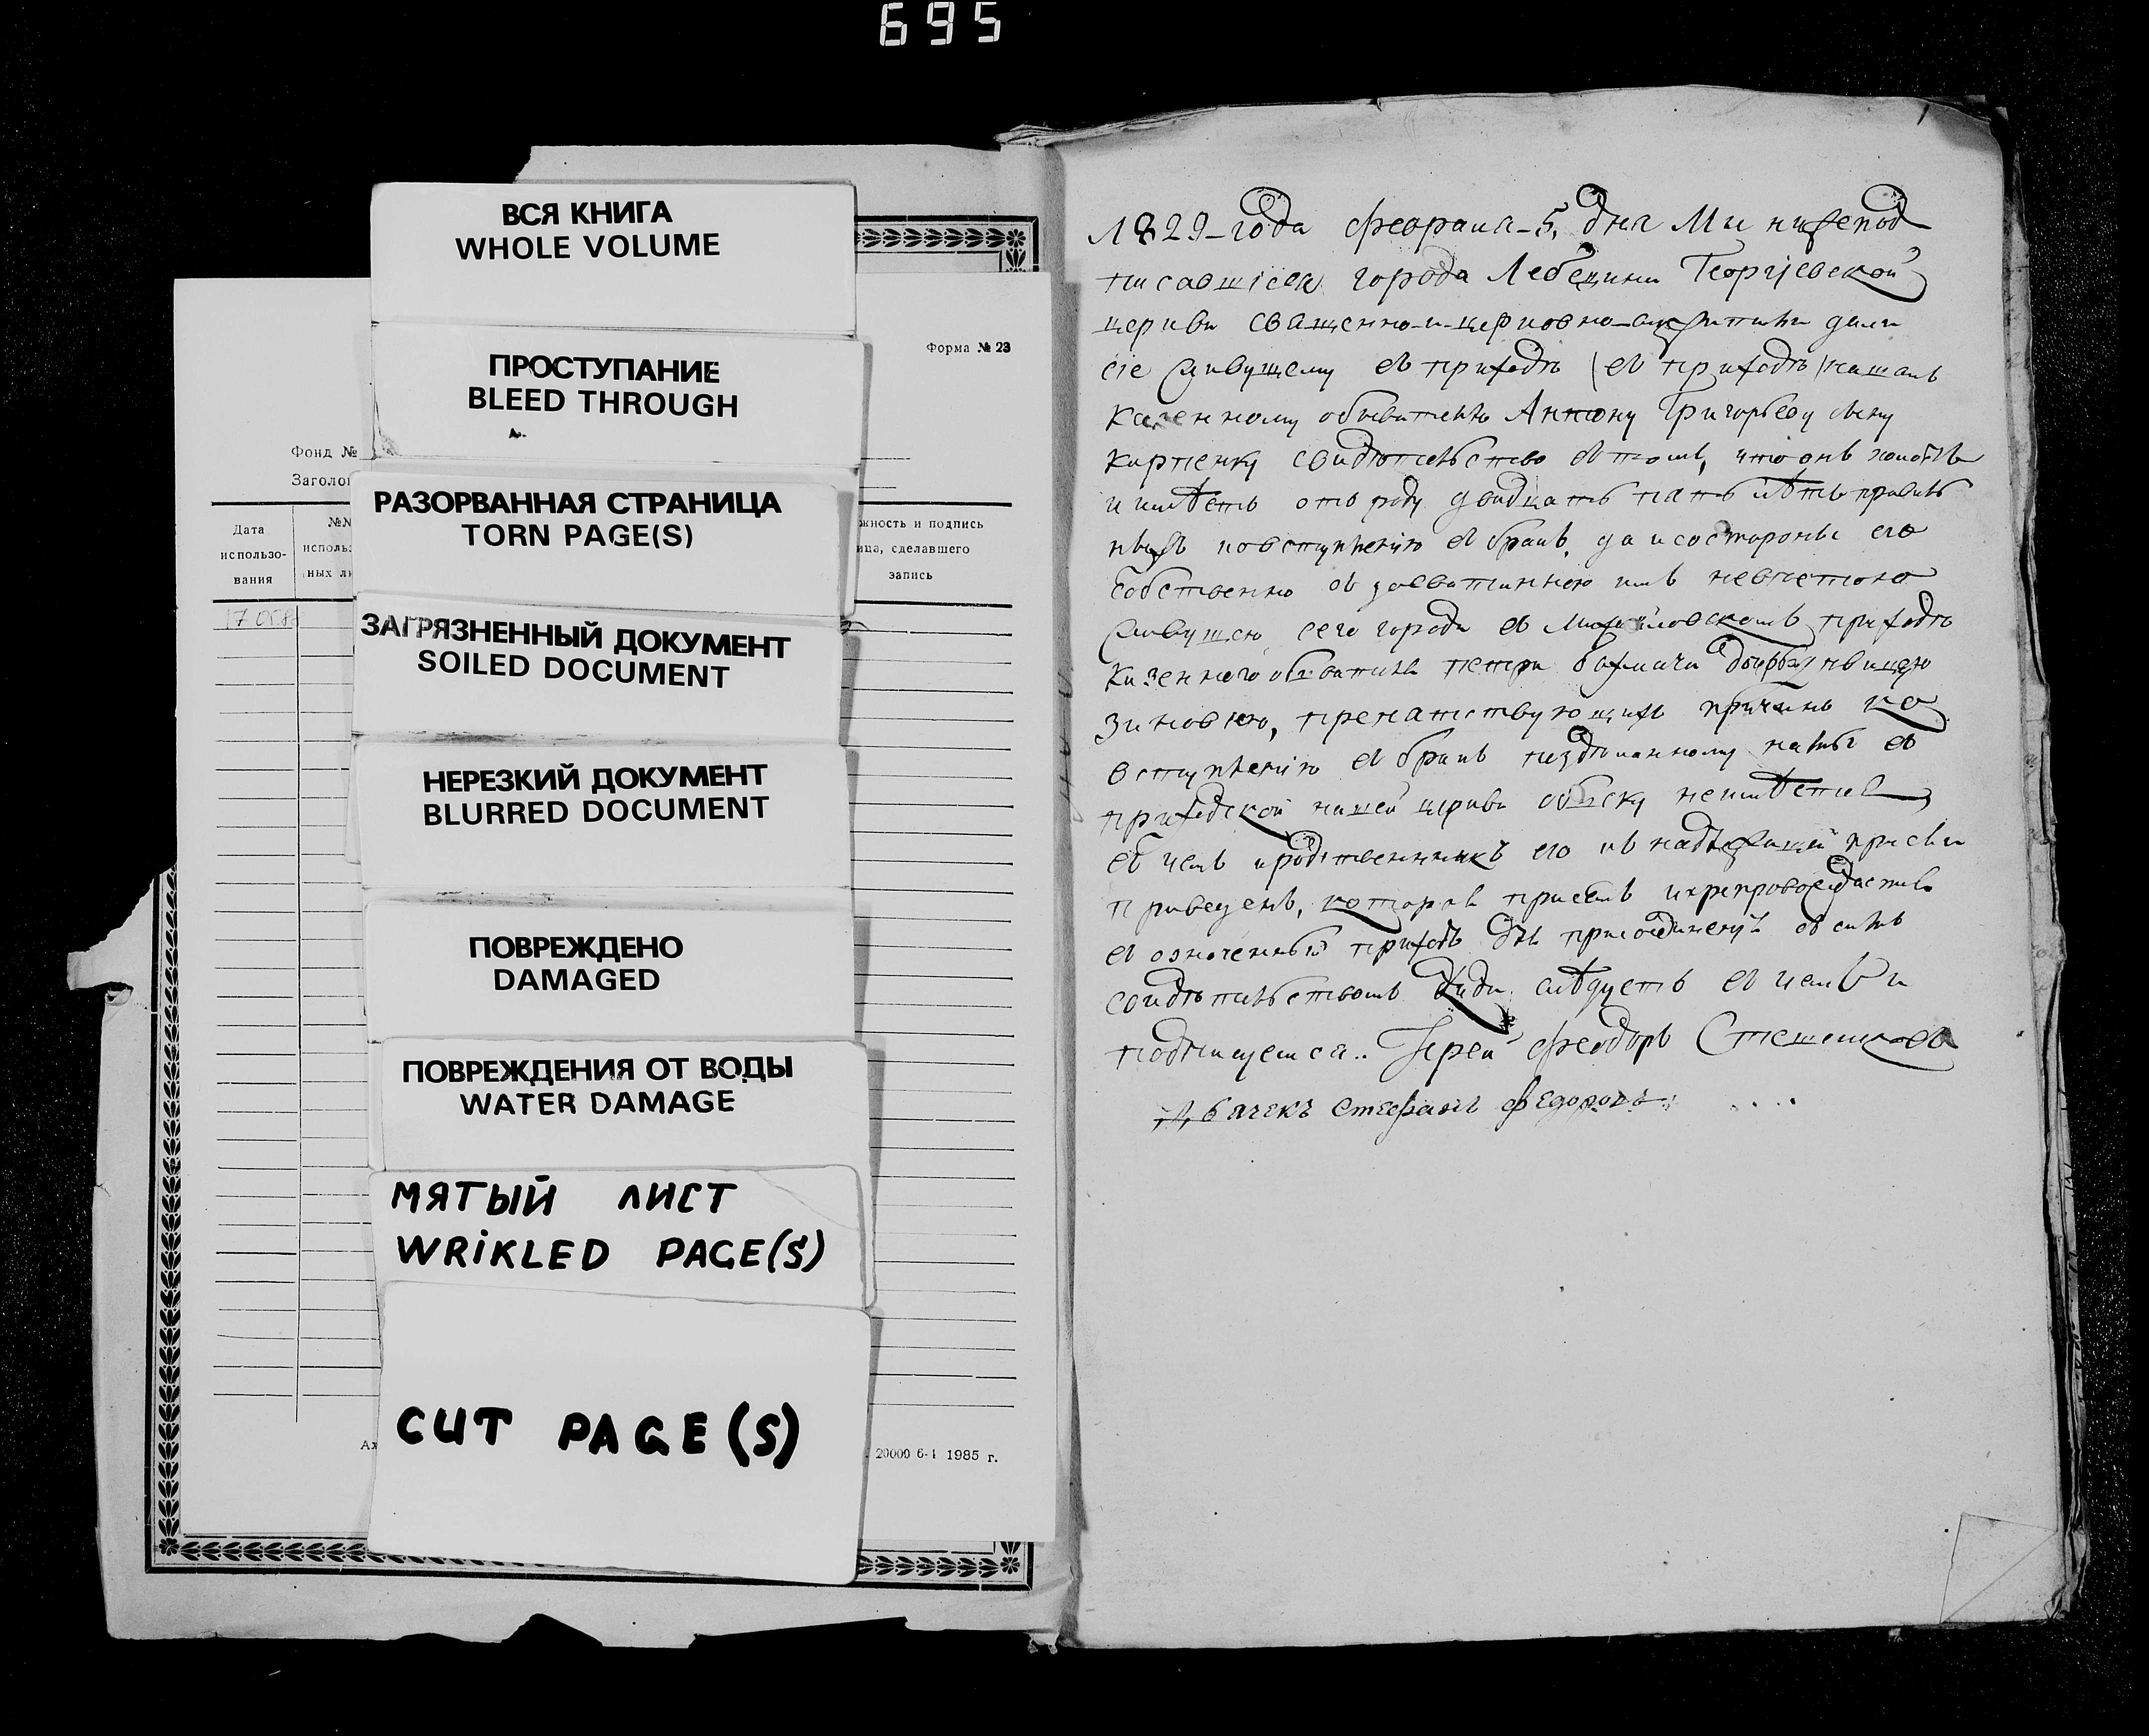 695
ВСЯ КНИГА
WHOLE VOLUME
ПРОСТУПАНИЕ
BLEED THROUGH
РАЗОРВАННАЯ СТРАНИЦА
TORN PAGE(S)
ЗАГРЯЗНЕННЫЙ ДОКУМЕНТ
SOILED DOCUMENT
НЕРЕЗКИЙ ДОКУМЕНТ
BLURRED DOCUMENT
ПОВРЕЖДЕНО
DAMAGED
ПОВРЕЖДЕНИЯ ОТ ВОДЫ
WATER DAMAGE
МЯТЫЙ ЛИСТ
WRiKLED PAGE(S)
CUT PAGE(S)
Форма № 23
Фонд №
Заголо
Дата
использо-
вания
№№
исполь
ных л
жность и подпись
ица, сделавшего
запись
20000 6-1 1985 г.
1
1829-года февраля-5, дня Мы нижепод
писавшіеся города Лебедина Георгіевской
церкви священно-и-церковно-служители дали
сіе живущему въ приходѣ (въ приходѣ) нашемъ
казенному обывателю Антону Григорьеву сыну
карпенку свидѣтельство въ томъ, что онъ холостъ
и имѣетъ отъ роду двадцать пять лѣтъ
къ повступленію въ бракъ, да и состороны его
собственно
живущею сего города въ Михайловскомъ приходѣ
казенного обывателя петра дочерью девицею
зиновею, препятствующихъ причинъ ко
вступленію въ бракъ поздѣланному нами въ
приходской нашей церкви обыску неимѣется
въ чемъ и родственникъ его къ надлежащей присяги
приведенъ, которой присемъ ипрепровождается
въ означенный приходъ для присоединенія
свидѣтельствомъ куда слѣдуетъ въ чемъ и
подписуемся.. Іерей Феодоръ Стешенковъ
дьячекъ стефанъ федоровъ